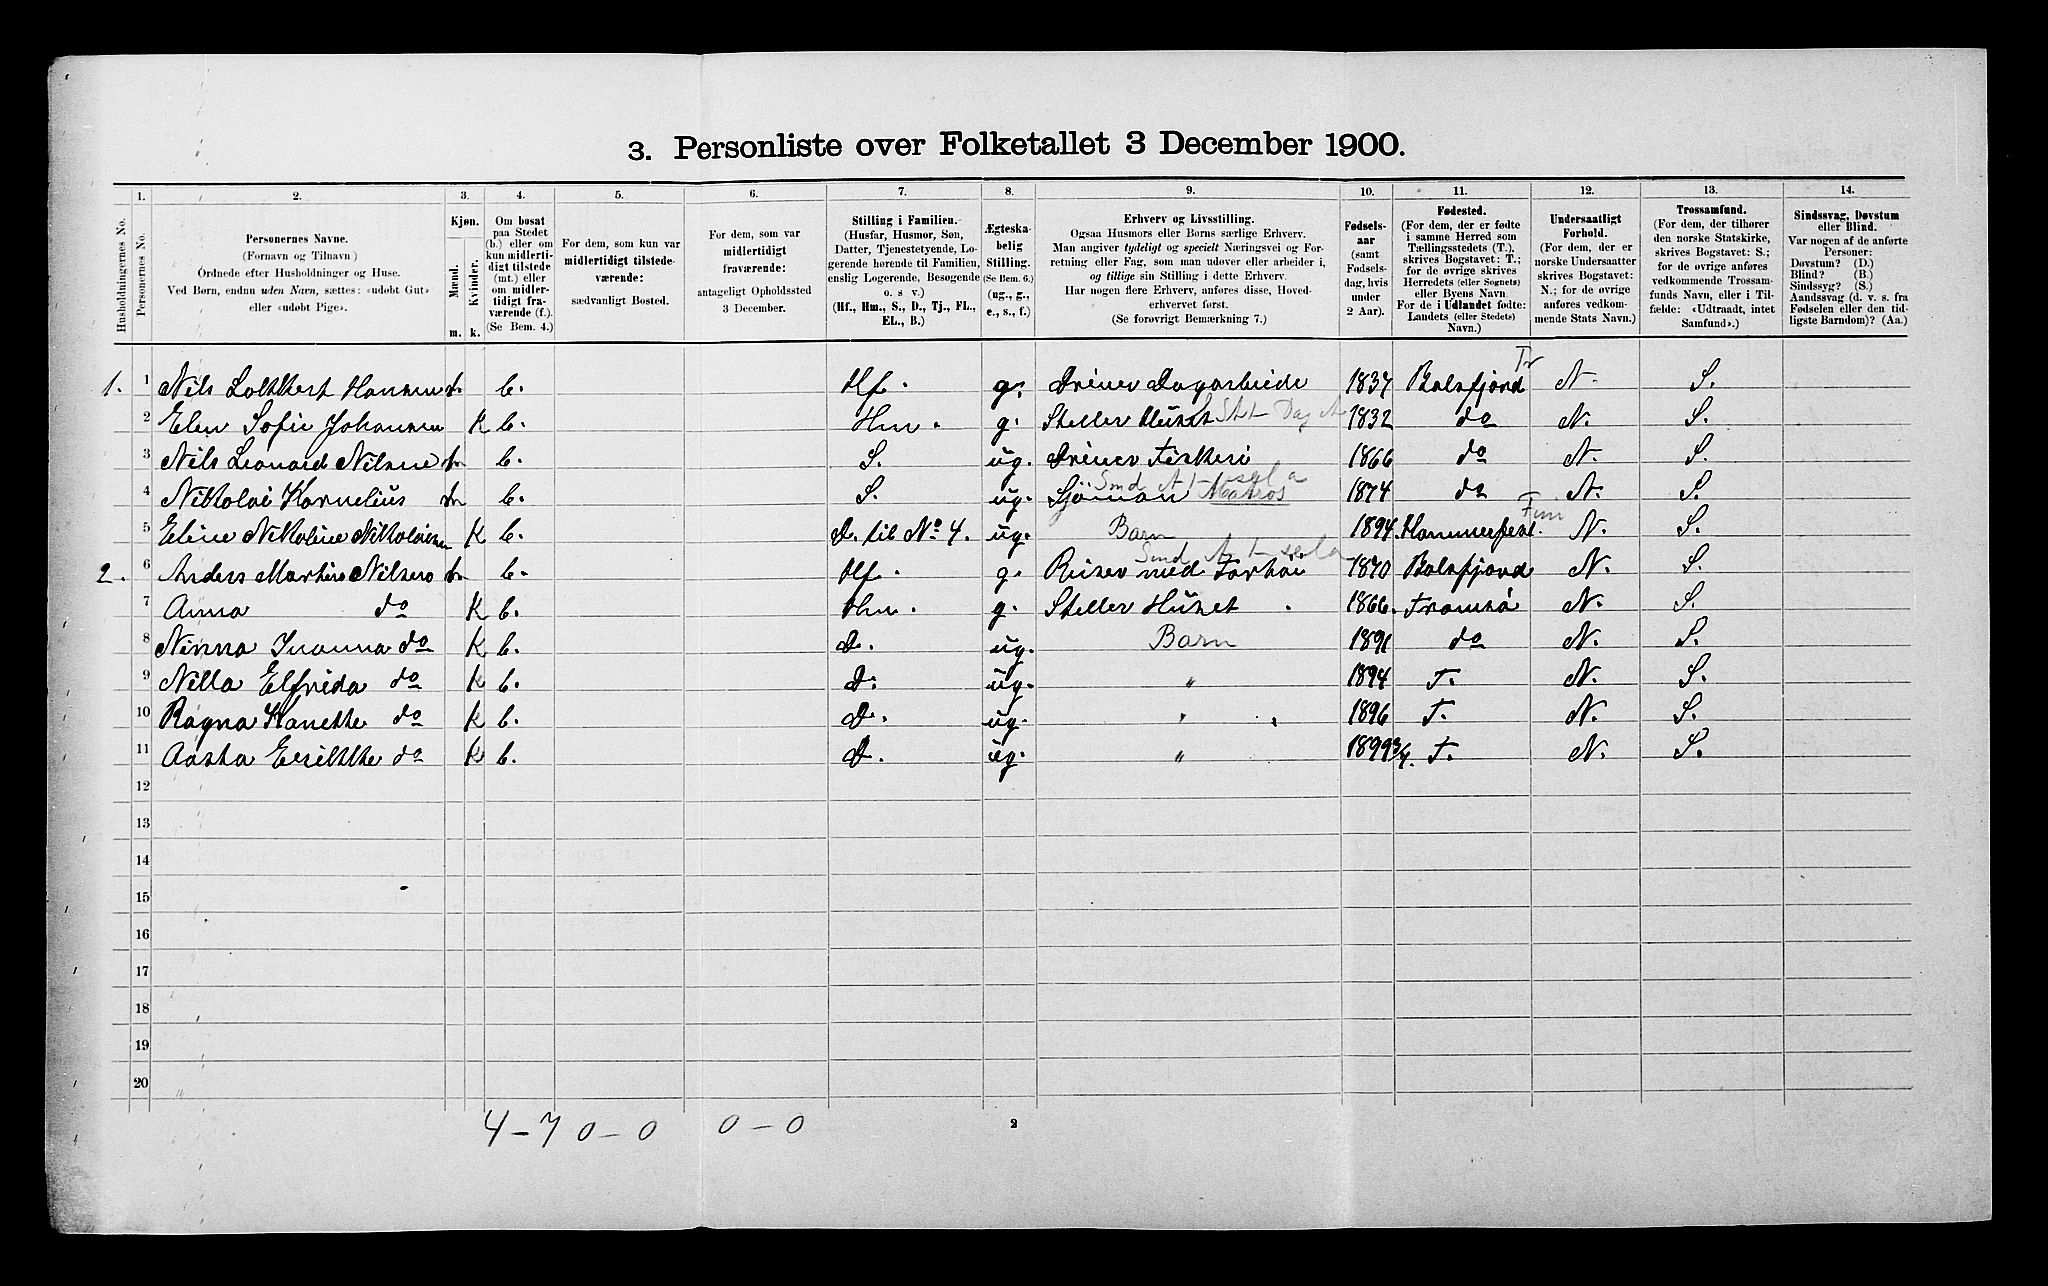 3. Personliste over Folketallet 3 December 1900.
1. 2. 3. 4. 5. 6. 7. 8. 9. 10. 11. 12. 13. 14.
Husholdningernes No.
Personernes No.
Personernes Navne.
(Fornavn og Tilnavn)
Ordnede efter Husholdninger og Huse.
Ved Børn, endnu uden Navn, sættes: «udøbt Gut»
eller «udøbt Pige».
Kjøn.
Mænd.
Kvinder.
m. k.
Om bosat
paa Stedet
(b.) eller om
kun midlerti-
digt tilstede
(mt.) eller
om midler-
tidigt fra-
værende (f.).
(Se Bem. 4.)
For dem, som kun var
midlertidigt tilstede-
værende:
sædvanligt Bosted.
For dem, som var
midlertidigt
fraværende:
antageligt Opholdssted
3 December.
Stilling i Familien.
(Husfar, Husmor, Søn,
Datter, Tjenestetyende, Lo-
gerende hørende til Familien,
enslig Logerende, Besøgende
o. s v.)
(Hf., Hm., S., D., Tj., FL.,
EL., B.)
Ægteska-
belig
Stilling.
(Se Bem. 6.)
(ug., g.,
e., s., f.)
Erhverv og Livsstilling.
Ogsaa Husmors eller Børns særlige Erhverv.
Man angiver tydeligt og specielt Næringsvei og For-
retning eller Fag, som man udøver eller arbeider i,
og tillige sin Stilling i dette Erhverv.
Har nogen flere Erhverv, anføres disse, Hoved-
erhvervet først.
(Se forøvrigt Bemærkning 7.)
Fødsels-
aar
(samt
Fødsels-
dag, hvis
under
2 Aar).
Fødested.
(For dem, der er fødte
i samme Herred som
Tællingsstedets (T.),
skrives Bogstavet: T.;
for de øvrige skrives
Herredets (eller Sognets)
eller Byens Navn.
For de i Udlandet fødte:
Landets (eller Stedets)
Navn.)
Undersaatligt
Forhold.
(For dem, der er
norske Undersaatter
skrives Bogstavet:
N.; for de øvrige
anføres vedkom-
mende Stats Navn.)
Trossamfund.
(For dem, der tilhører
den norske Statskirke,
skrives Bogstavet: S.;
for de øvrige anføres
vedkommende Trossam-
funds Navn, eller i Til-
fælde: «Udtraadt, intet
Samfund».)
Sindssvag, Døvstum
eller Blind.
Var nogen af de anførte
Personer:
Døvstum? (D.)
Blind? (B.)
Sindssyg? (S.)
Aandssvag (d. v. s. fra
Fødselen eller den tid-
ligste Barndom)? (Aa.)
1. 1 Nils Hansen m b. Hf. g. Driver Dagarbeide 1837 Balsfjord Tr N. S.
2 Elen Sofie Johansen K b. Hm. g. Steller Huset 1832 do N. S.
3 Nils Leonard Nilsen m b. S. ug. Driver Fiskeri 1866 do N. S.
4 Nikolai Kornelius m b. S. ug. Sjöman Matros 1874 do N. S.
5 Eline Nikoline Nikolaisen K b. D. til No 4. ug. Barn 1894. Hammerfest. Fin N. S.
2. 6 Anders Martin Nilsen m b. Hf. g. Reiser med 1870 Balsfjord N. S.
7 Anna do K b. Hm. g. Steller Huset 1866. Tromsö N. S.
8 Ninna Juanna do K b. D. ug. Barn 1891 do N. S.
9 Nilla Elfrida do K b. D. ug. " 1894 T. N. S.
10 Ragna Hanette do K b. D. ug. " 1896 T. N. S.
11 Aasta do K b. D. ug. " 1899 T. N. S.
12
13
14
15
16
17
18
19
20
4-7 0-0 0-0 2